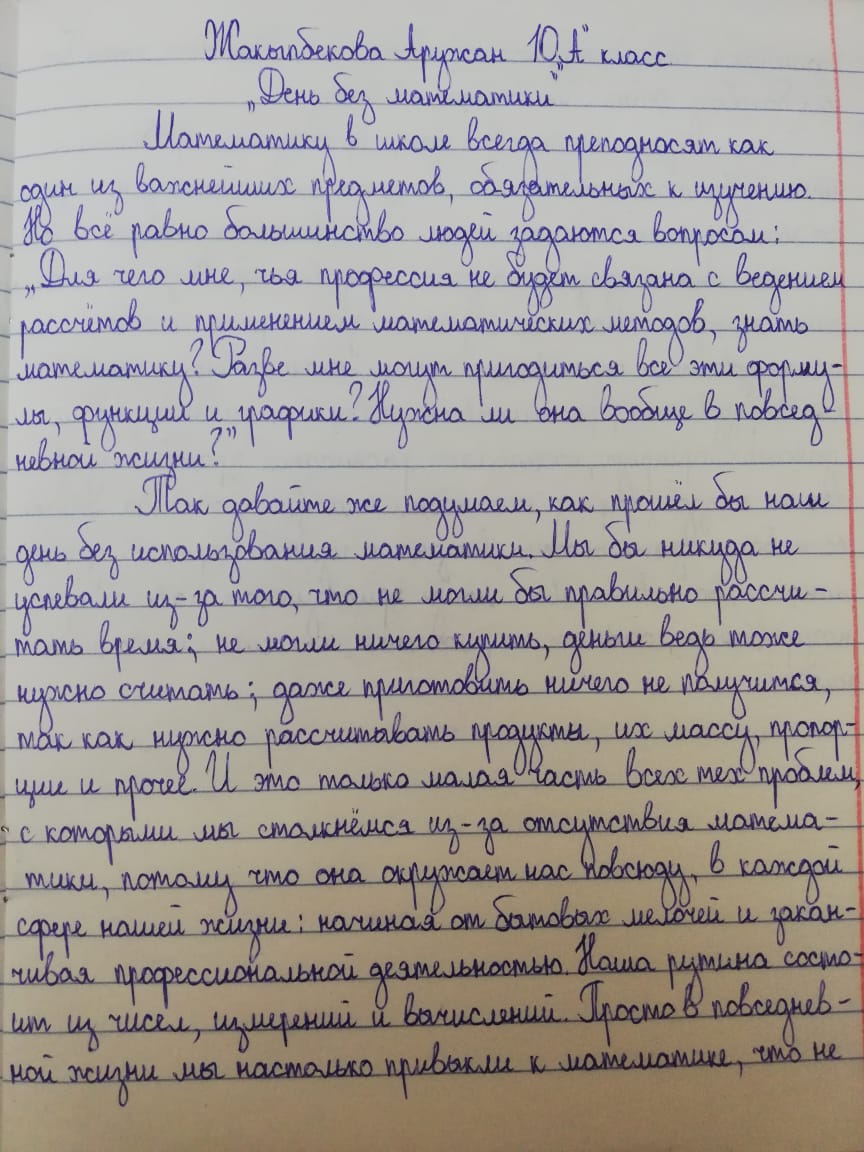 Жакыпбекова Аружан 10 „А" класс
„День без математики"
Математику в школе всегда преподносят как
один из важнейших предметов, обязательных к изучению.
Но всё равно большинство людей задаются вопросом:
„Для чего мне, чья профессия не будет связана с ведением
рассчётов и применением математических методов, знать
математику? Разве мне могут пригодиться все эти форму-
лы, функции и графики? Нужна ли она вообще в повсед-
невной жизни?"
Так давайте же подумаем, как прошёл бы наш
день без использования математики. Мы бы никуда не
успевали из-за того, что не могли бы правильно рассчи-
тать время; не могли ничего купить, деньги ведь тоже
нужно считать; даже приготовить ничего не получится,
так как нужно рассчитывать продукты, их массу, пропор-
ции и прочее. И это только малая часть всех тех проблем,
с которыми мы столкнёмся из-за отсутствия матема-
тики, потому что она окружает нас повсюду, в каждой
сфере нашей жизни: начиная от бытовых мелочей и закан-
чивая профессиональной деятельностью. Наша рутина состо-
ит из чисел, измерений и вычислений. Просто в повседнев-
ной жизни мы настолько привыкли к математике, что не